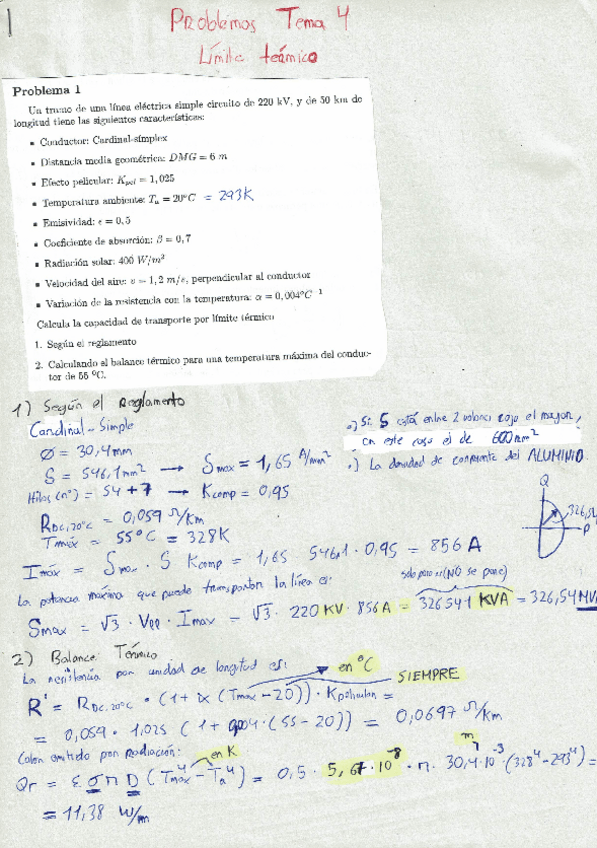 1
Problemas Tema 4
Límite térmico
Problema 1
Un tramo de una línea eléctrica simple circuito de 220 kV, y de 50 km de
longitud tiene las siguientes características:
▪ Conductor: Cardinal-simplex
▪ Distancia media geométrica: DMG = 6 m
▪ Efecto pelicular: Kpel = 1,025
▪ Temperatura ambiente: Ta = 20°C = 293K
▪ Emisividad: ϵ = 0,5
▪ Coeficiente de absorción: β = 0,7
▪ Radiación solar: 400 W/m²
▪ Velocidad del aire: v = 1,2 m/s, perpendicular al conductor
▪ Variación de la resistencia con la temperatura: α = 0,004°C⁻¹
Calcula la capacidad de transporte por límite térmico
1. Según el reglamento
2. Calculando el balance térmico para una temperatura máxima del conduc-
tor de 55 °C.
1) Según el Reglamento
Cardinal - Simple
Ø = 30,4mm
S = 546,1mm² → Smax = 1,65 A/mm²
Hilos (nº) = 54 + 7 → Kcomp = 0,95
•) Si S está entre 2 valores cojo el mayor,
en este caso el de 600mm²
•) La densidad de corriente del ALUMINIO.
RDC,20°C = 0,059 Ω/Km
Tmáx = 55°C = 328K
Imáx = Smax · S Kcomp = 1,65 · 546,1 · 0,95 = 856 A
Q
326,54
P
La potencia máxima que puede transportar la línea es:
solo para ti (NO se pone)
Smax = √3 · Vpp · Imax = √3 · 220 KV · 856 A = 326541 KVA = 326,54 MVA
2) Balance Térmico
La resistencia por unidad de longitud es:
en °C
SIEMPRE
R' = RDC,20°C · (1 + α (Tmax - 20)) · Kpelicular =
= 0,059 · 1,025 (1 + 0,004 · (55 - 20)) = 0,0697 Ω/Km
Calor emitido por radiación:
en K
m
Qr = ε σ π D (Tmax⁴ - Ta⁴) = 0,5 · 5,67 · 10⁻⁸ · π · 30,4 · 10⁻³ · (328⁴ - 293⁴) =
= 11,38 W/m